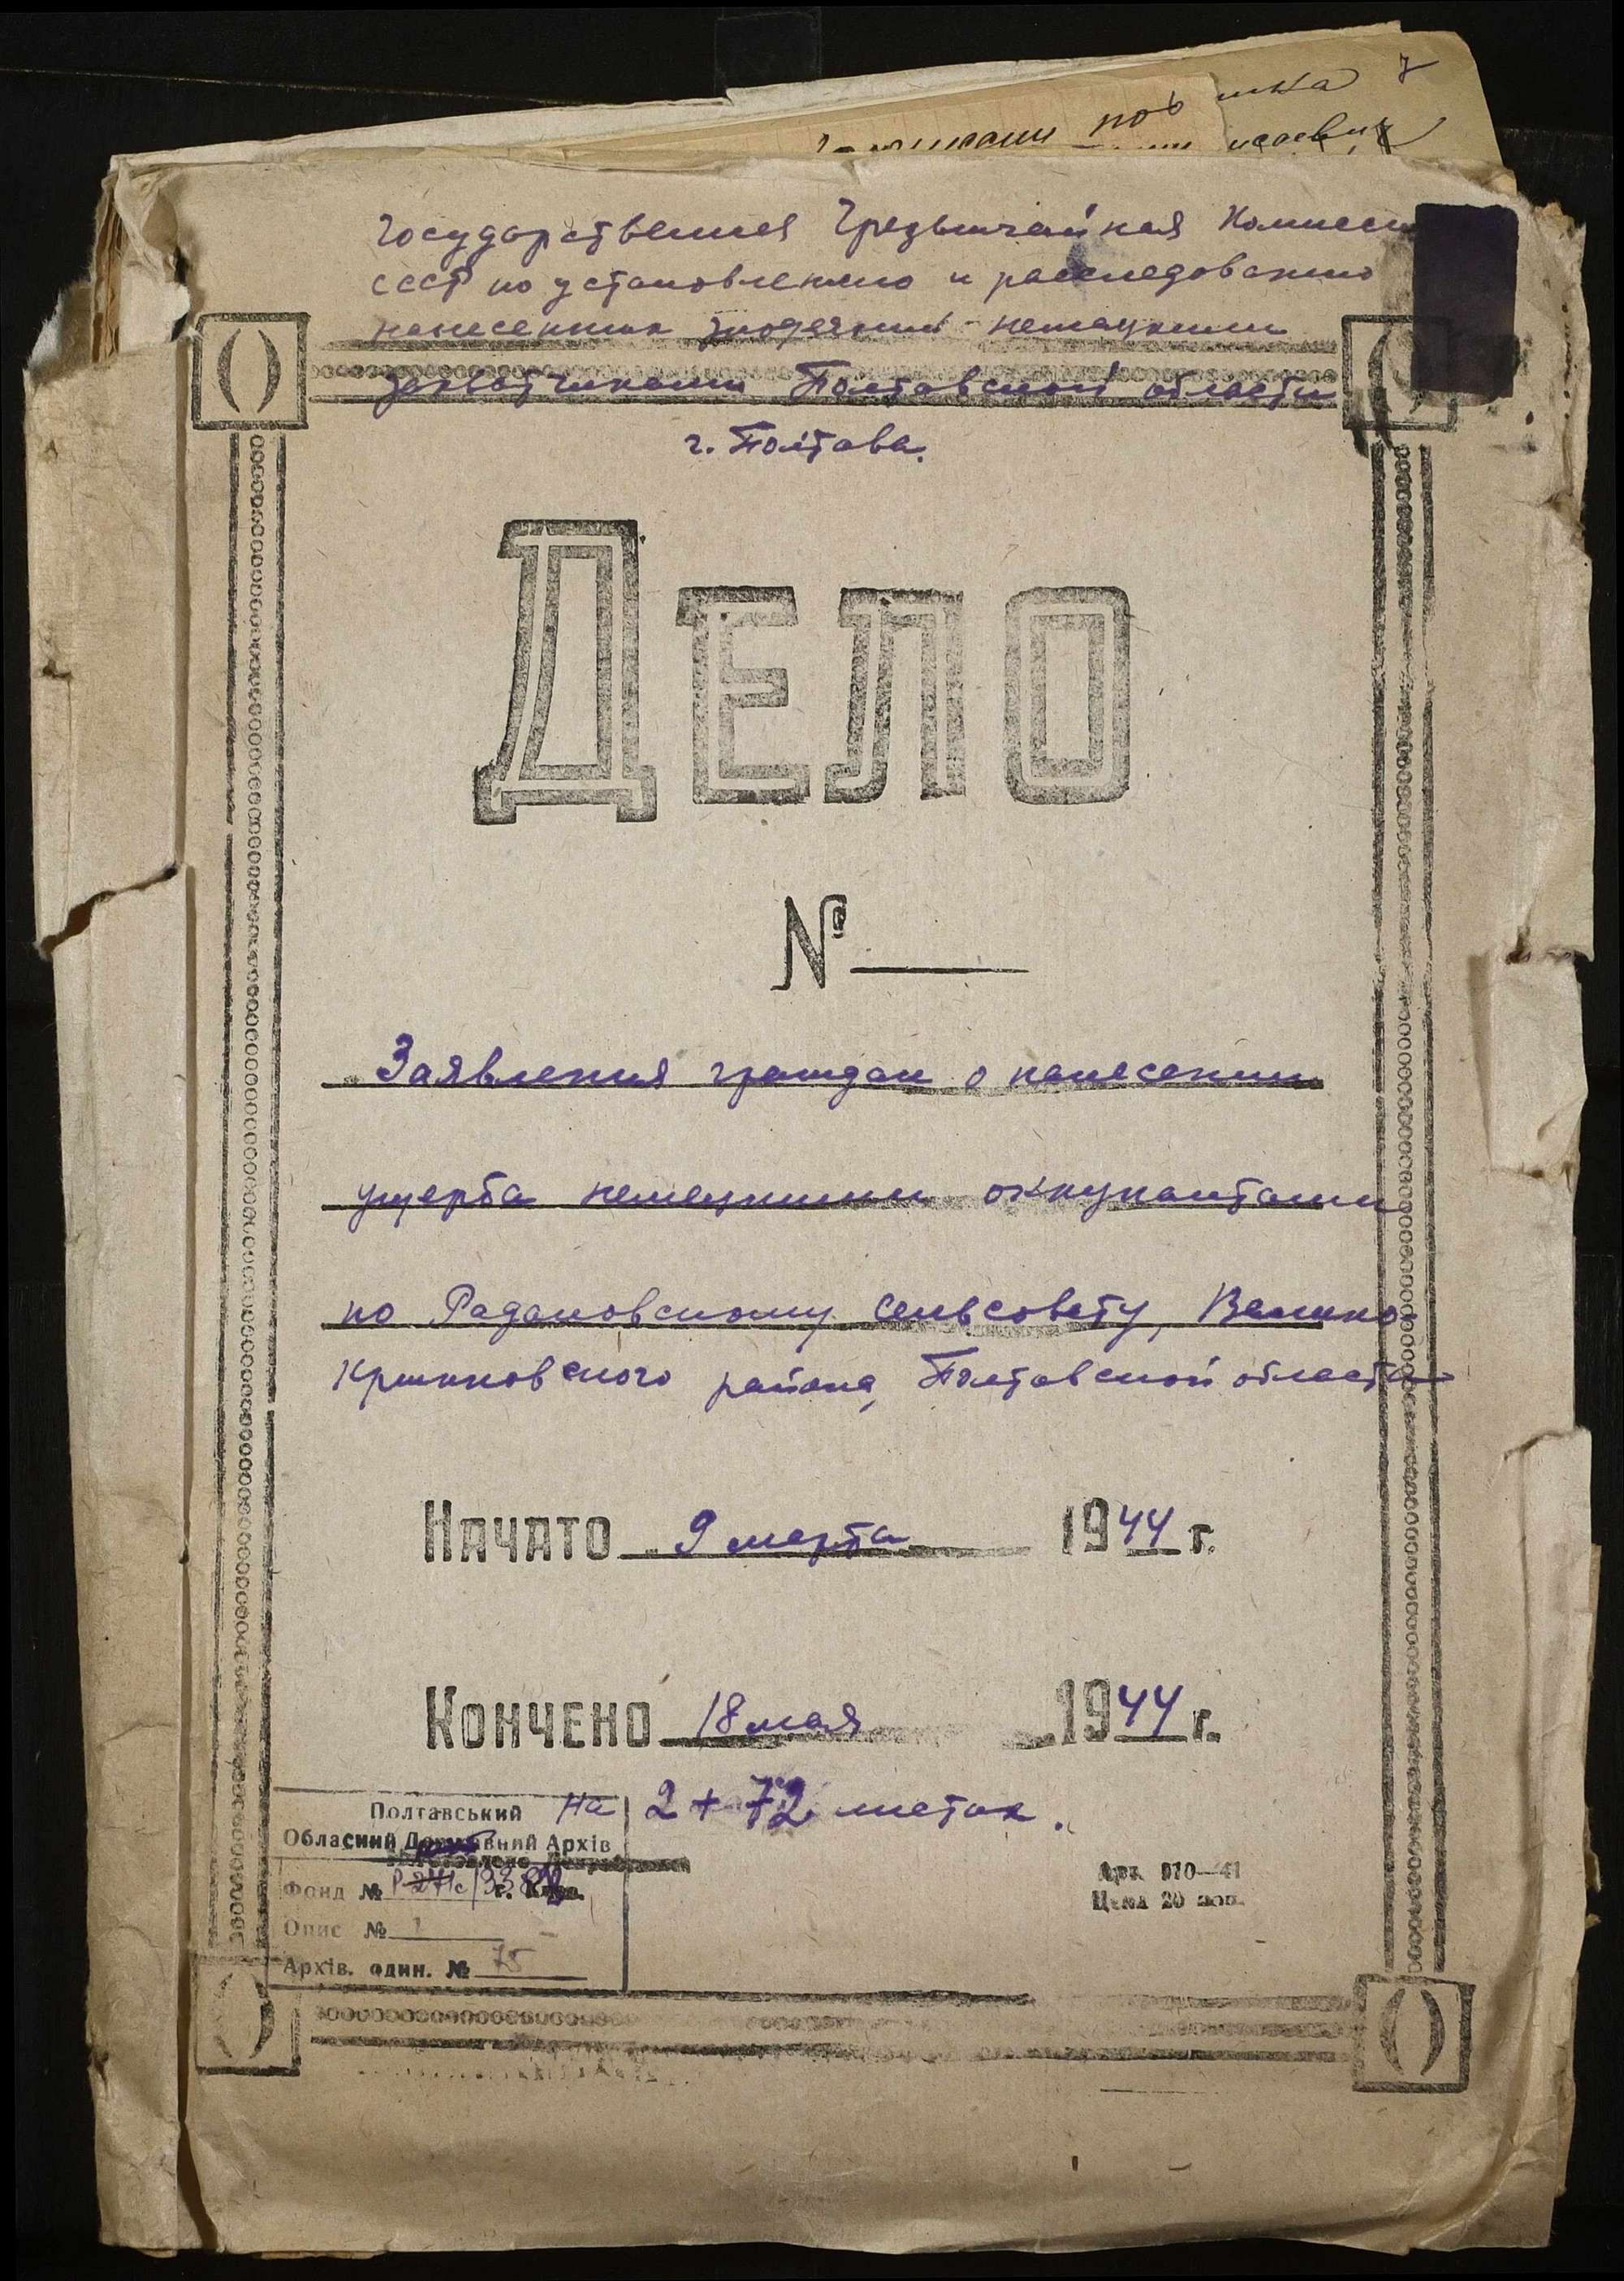 Государственная Чрезвычайная Комиссия
СССР по установлению и расследованию
нанесенных злодеяний немецкими
захватчиками Полтавской области
г. Полтава.
ДЕЛО
№
Заявления граждан о нанесении
ущерба немецкими оккупантами
по Радаловскому сельсовету, Велико-
Крынковского района, Полтавской области
НАЧАТО 9 марта 1944 г.
КОНЧЕНО 18 мая 1944 г.
на 2 + 72 листах.
Полтавський
Обласний Державний Архів
Фонд № Р-3388
Опис № 1
Архів. один. № 75
Арт. 910—41
Цена 20 коп.